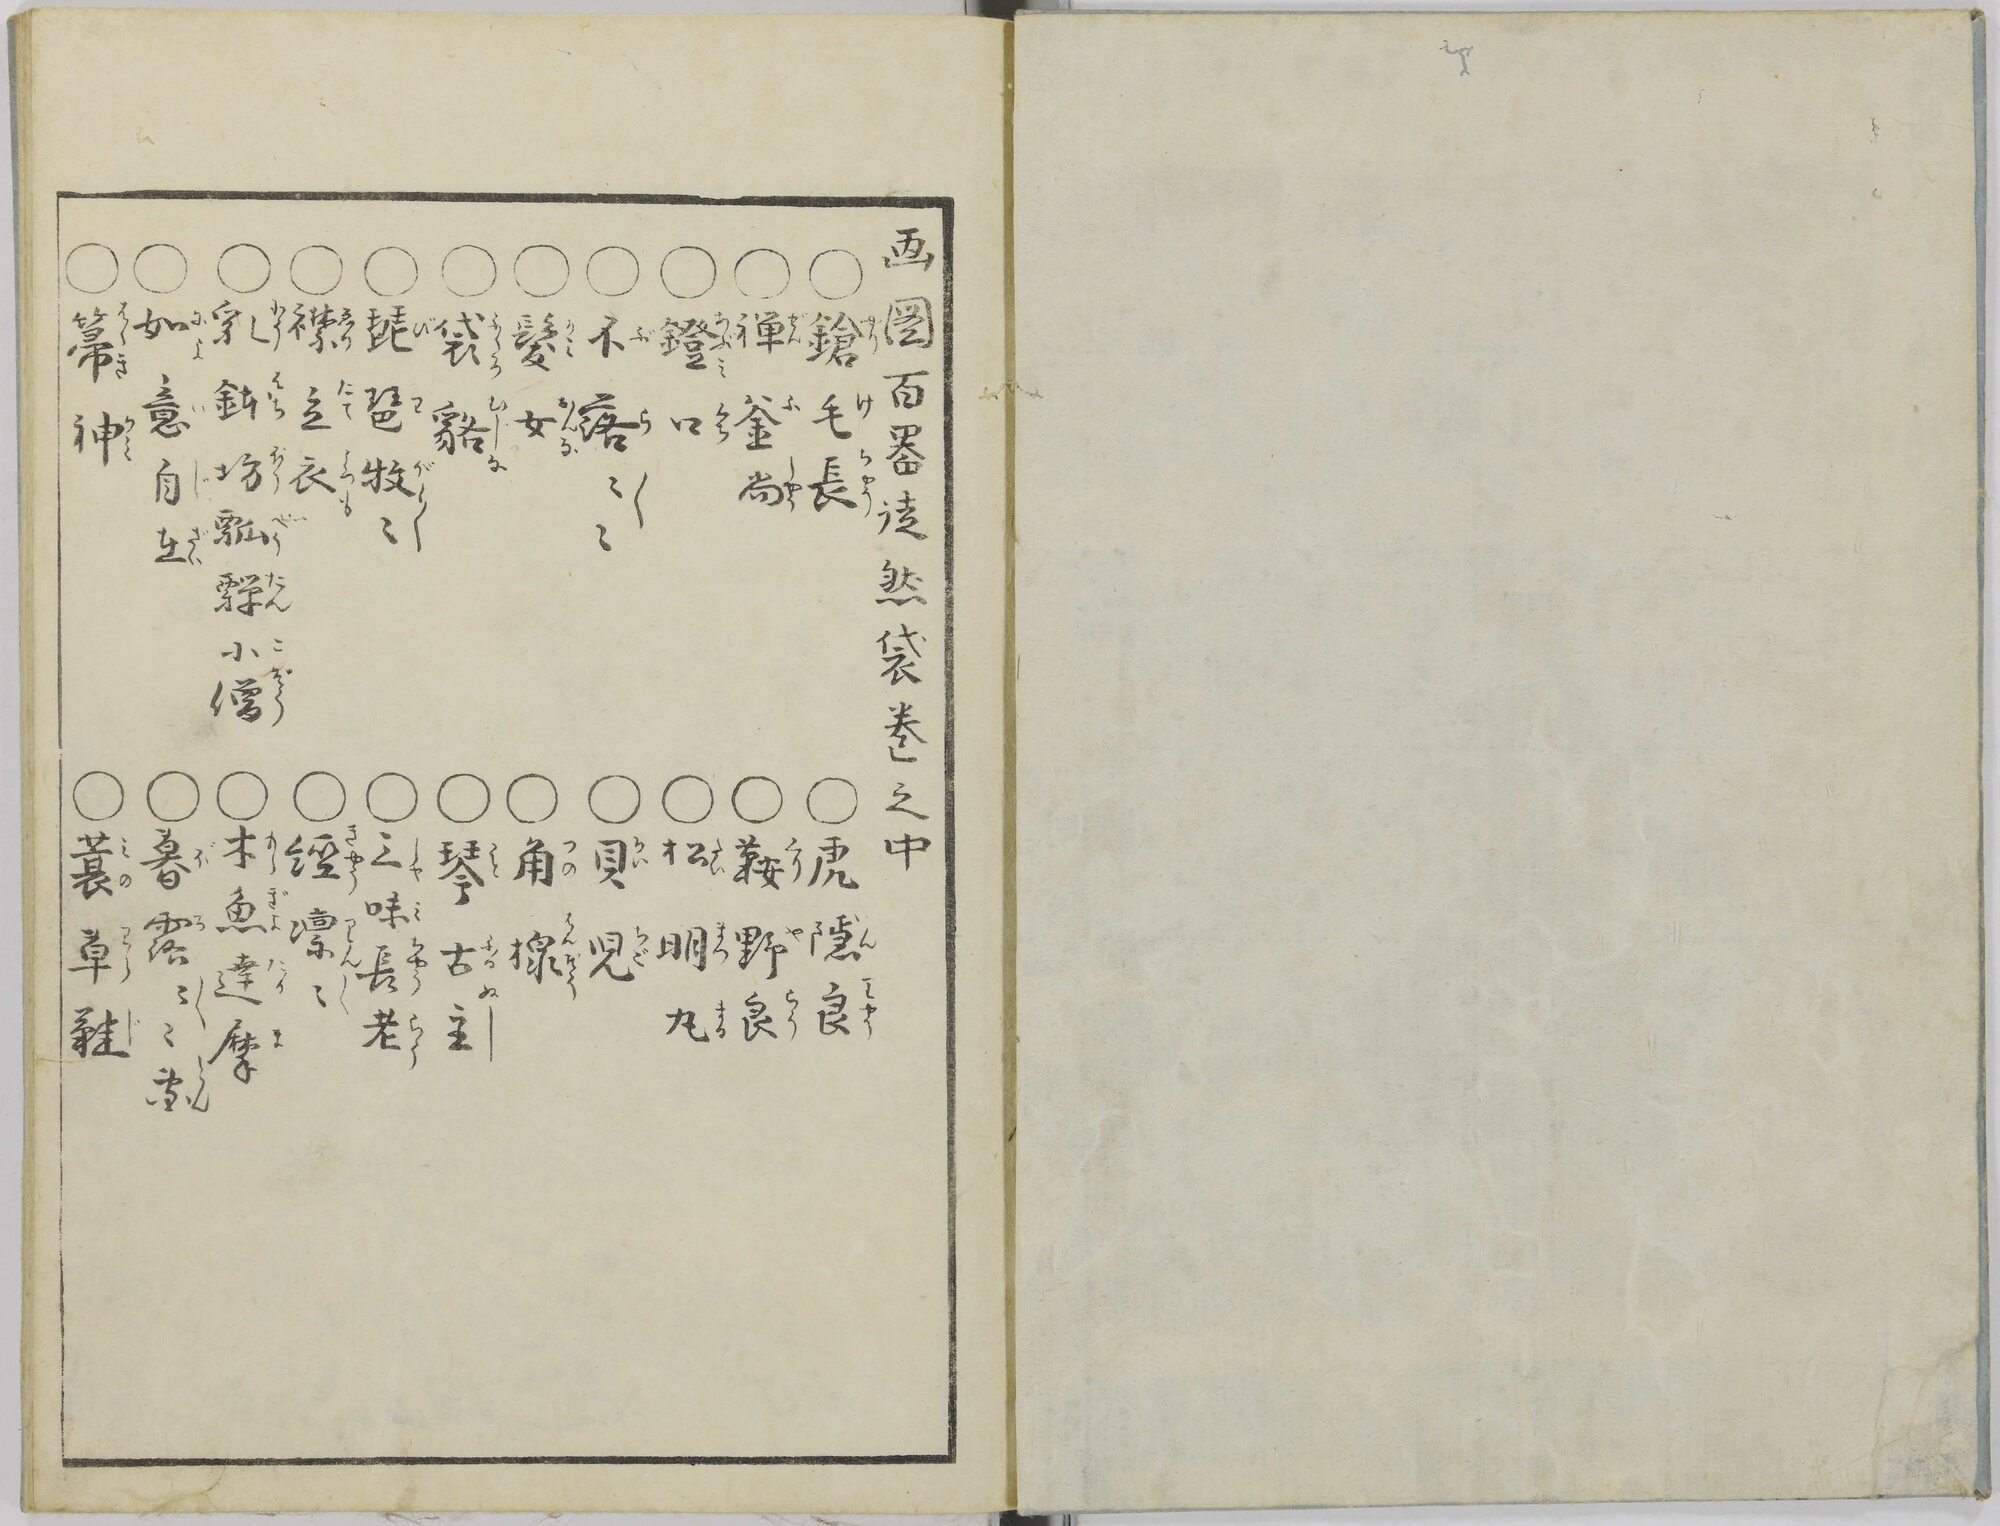 画圖百器徒然袋巻之中
○鎗毛長
○虎隠良
○禅釜尚
○鞍野良
○鐙口
○松明丸
○不落々々
○貝児
○髪女
○角楾
○袋貉
○琴古主
○琵琶牧々
○三味長老
○襟立衣
○經凛々
○乳鉢坊瓢箪小僧
○木魚達摩
○如意自在
○暮露々々團
○箒神
○蓑草鞋